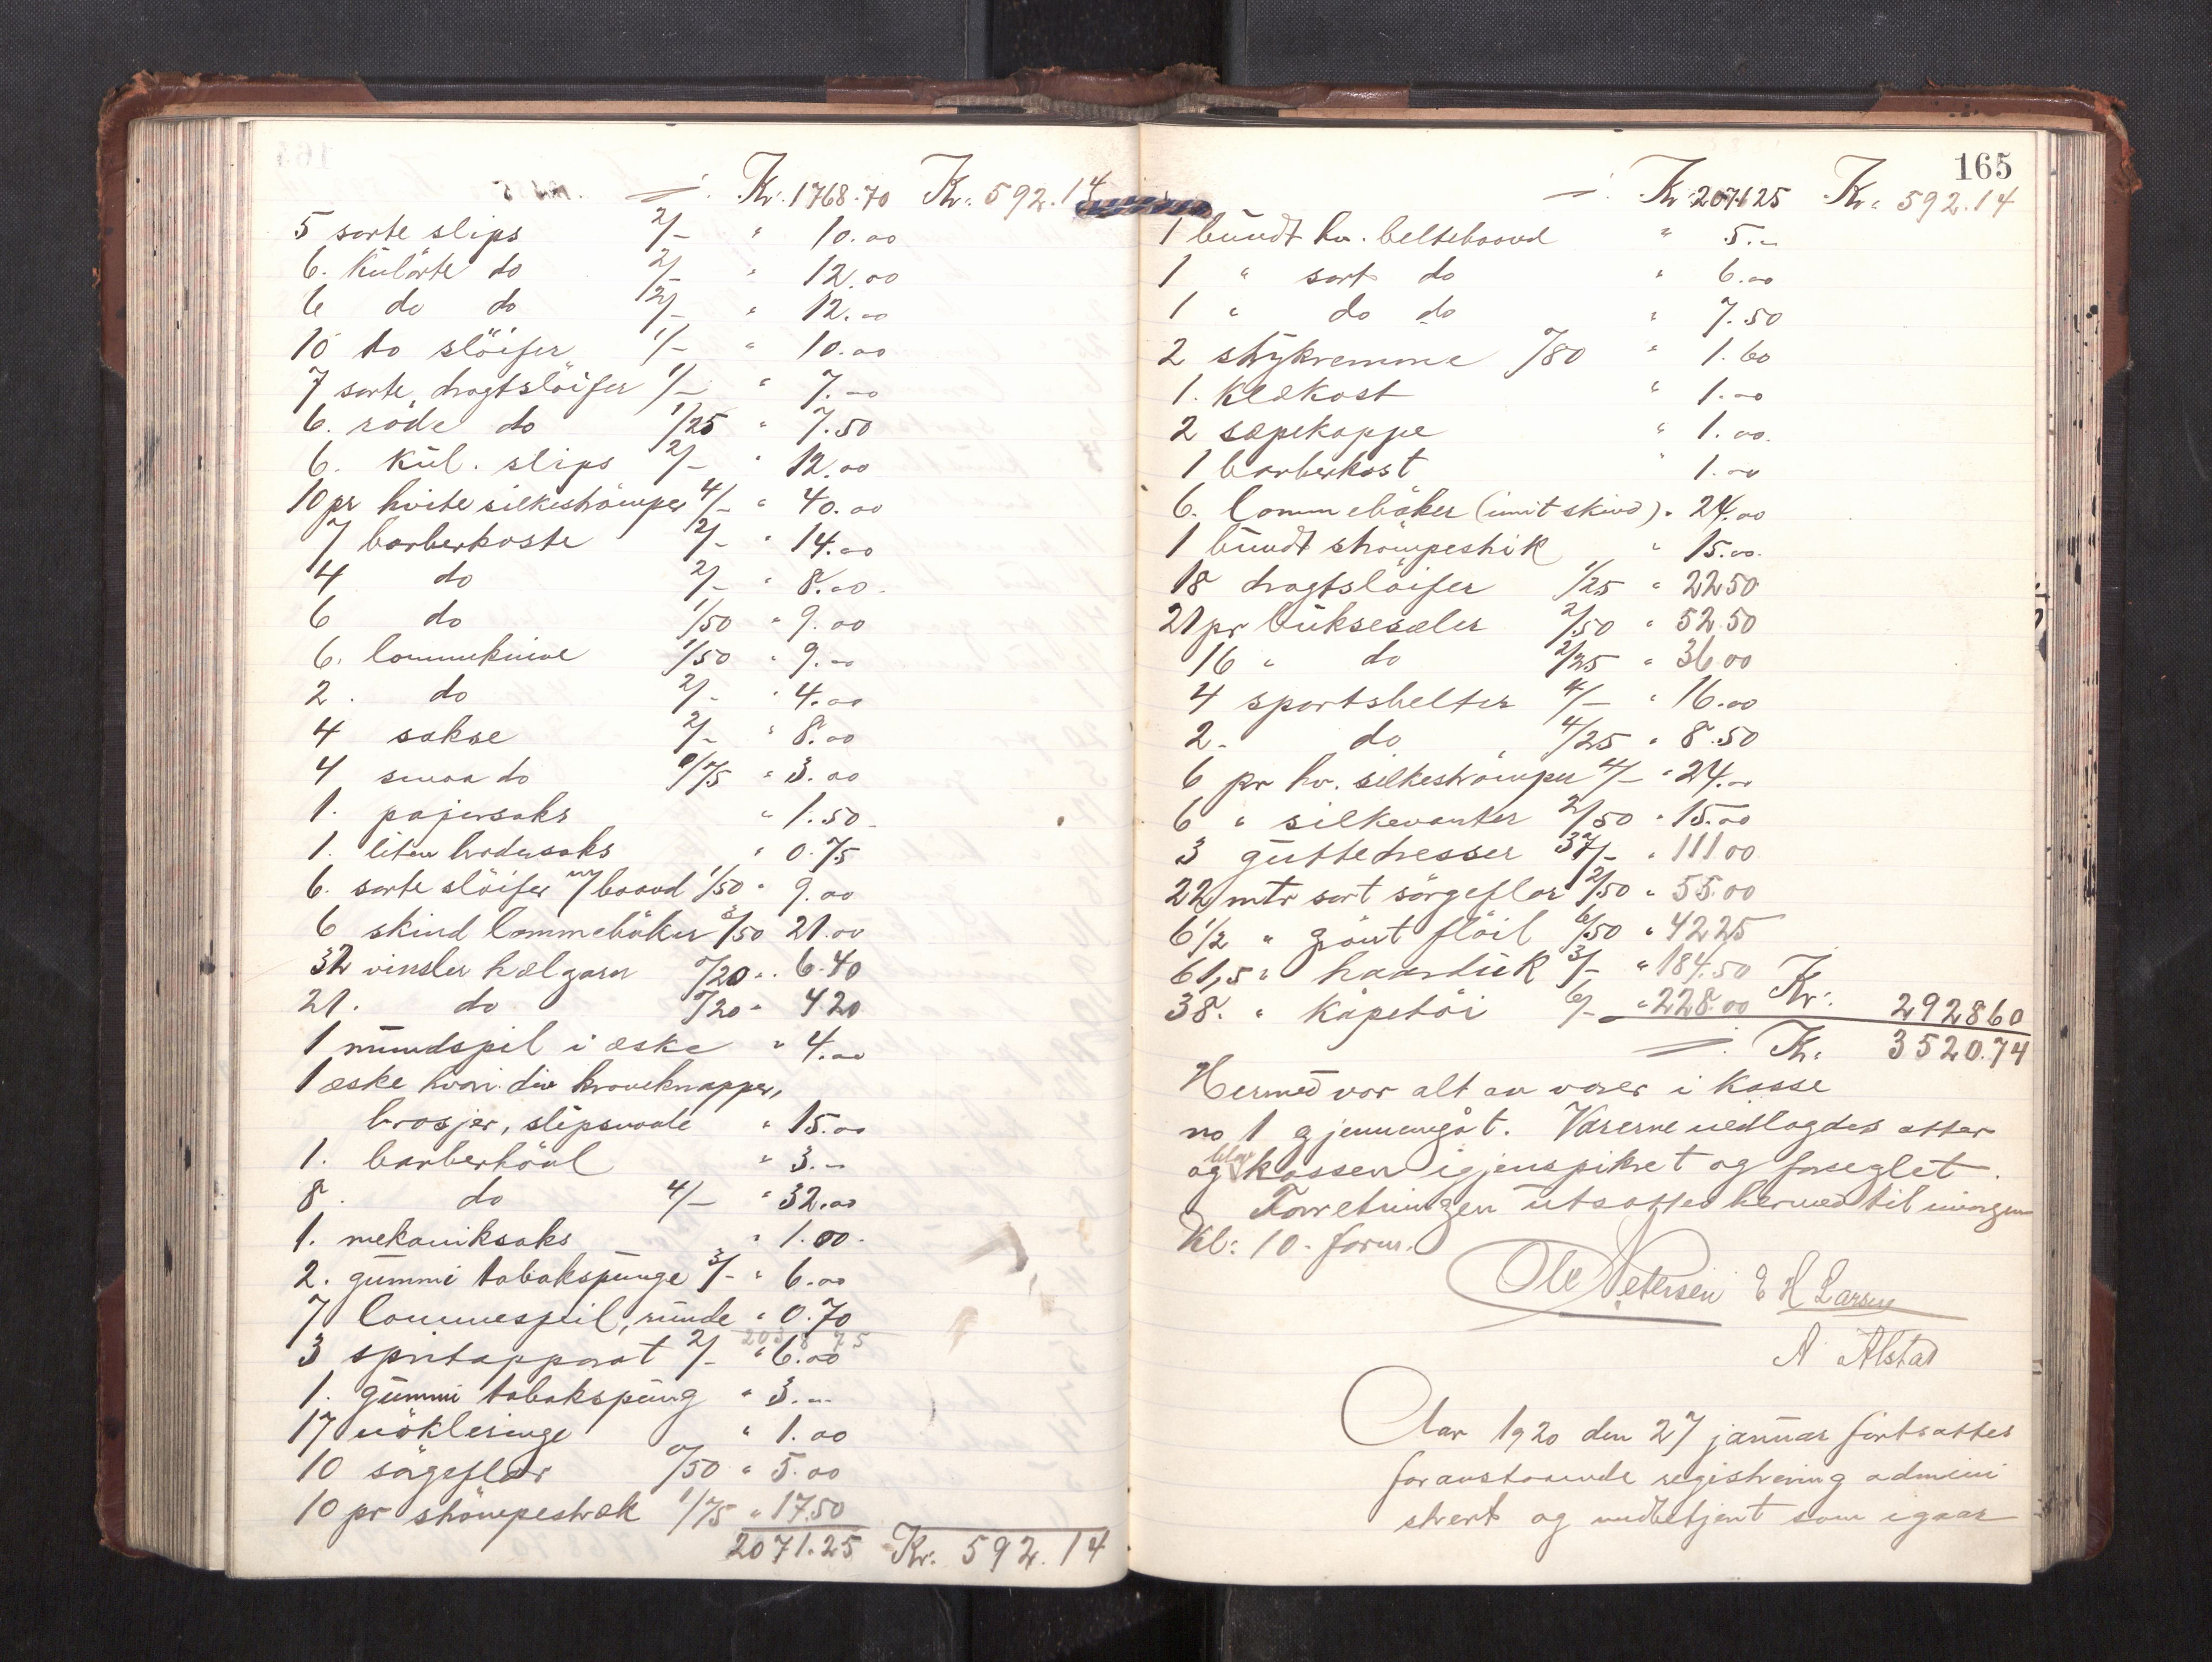 Kr. 1768.70 Kr. 592.14
5 sorte slips 2/- " 10.00
6. kulörte do 2/- " 12.00
6 do do 2/- " 12.00
10 do slöifer 1/- " 10.00
7 sorte dragtslöifer 1/- " 7.00
6. röde do 1/25 " 7.50
6. kul. slips 2/- " 12.00
10 pr hvite silkeströmper 4/- " 40.00
7 barberkoste 2/- " 14.00
4 do 2/- " 8.00
6 do 1/50 " 9.00
6. lommeknive 1/50 " 9.00
2. do 2/- " 4.00
4 sakse 2/- " 8.00
4 smaa do 0/75 " 3.00
1. papirsaks " 1.50
1. liten brodersaks " 0.75
6. sorte slöifer m/ baand 1/50 " 9.00
6 skind lommeböker 3/50 21.00
32 vinsler hælgarn 0/20 " 6.40
21. do 0/20 " 4.20
1 mundspil i æske " 4.00
1 æske hvori div kraveknapper,
brosjer, slipsnaale " 15.00
1. barberhövl " 3.-
8. do 4/- " 32.00
1. mekaniksaks " 1.00
2. gummi tobakspunge 3/- " 6.00
7 lommespeil, runde " 0.70
3 spritapparat 2/- " 6.00
1. gummi tobakspung " 3.-
17 nökleringe " 1.00
10 sörgeflor 0/50 " 5.00
10 pr strömpestræk 1/75 " 17.50
2071.25 Kr. 592.14
165
Kr 2071.25 Kr. 592.14
1 bundt hv. beltebaand " 5.-
1 " sort do " 6.00
1 " do do " 7.50
2 strykremme 0/80 " 1.60
1. klækost " 1.00
2 sæpekoppe " 1.00
1 barberkost " 1.00
6. lommeböker (imit skind) " 24.00
1 bundt strömpestrik " 15.00
18 dragtslöifer 1/25 " 22.50
21 pr bukseseler 2/50 " 52.50
16 " do 2/25 " 36.00
4 sportsbelter 4/- " 16.00
2 " do 4/25 " 8.50
6 pr hv. silkeströmper 4/- " 24.00
6 " silkevanter 2/50 " 15.00
3 guttedresser 37/- " 111.00
22 mtr sort sörgeflor 2/50 " 55.00
6 1/2 " grönt flöil 6/50 " 42.25
61,5 " haanduk 3/- " 184.50
38. " kåpetöi 6/- " 228.00 Kr. 2928.60
Kr. 3520.74
Hermed var alt av varer i kasse
no 1 gjennemgåt. Varerne nedlagdes atter
og blev kassen igjenspikret og forseglet.
Forretningen utsattes hermed til imorgen
Kl: 10. form.
Ole Petersen E H Larsen
A Alstad
Aar 1920 den 27 januar fortsattes
foranstaaende registrering admini
strert og medbetjent som igaar